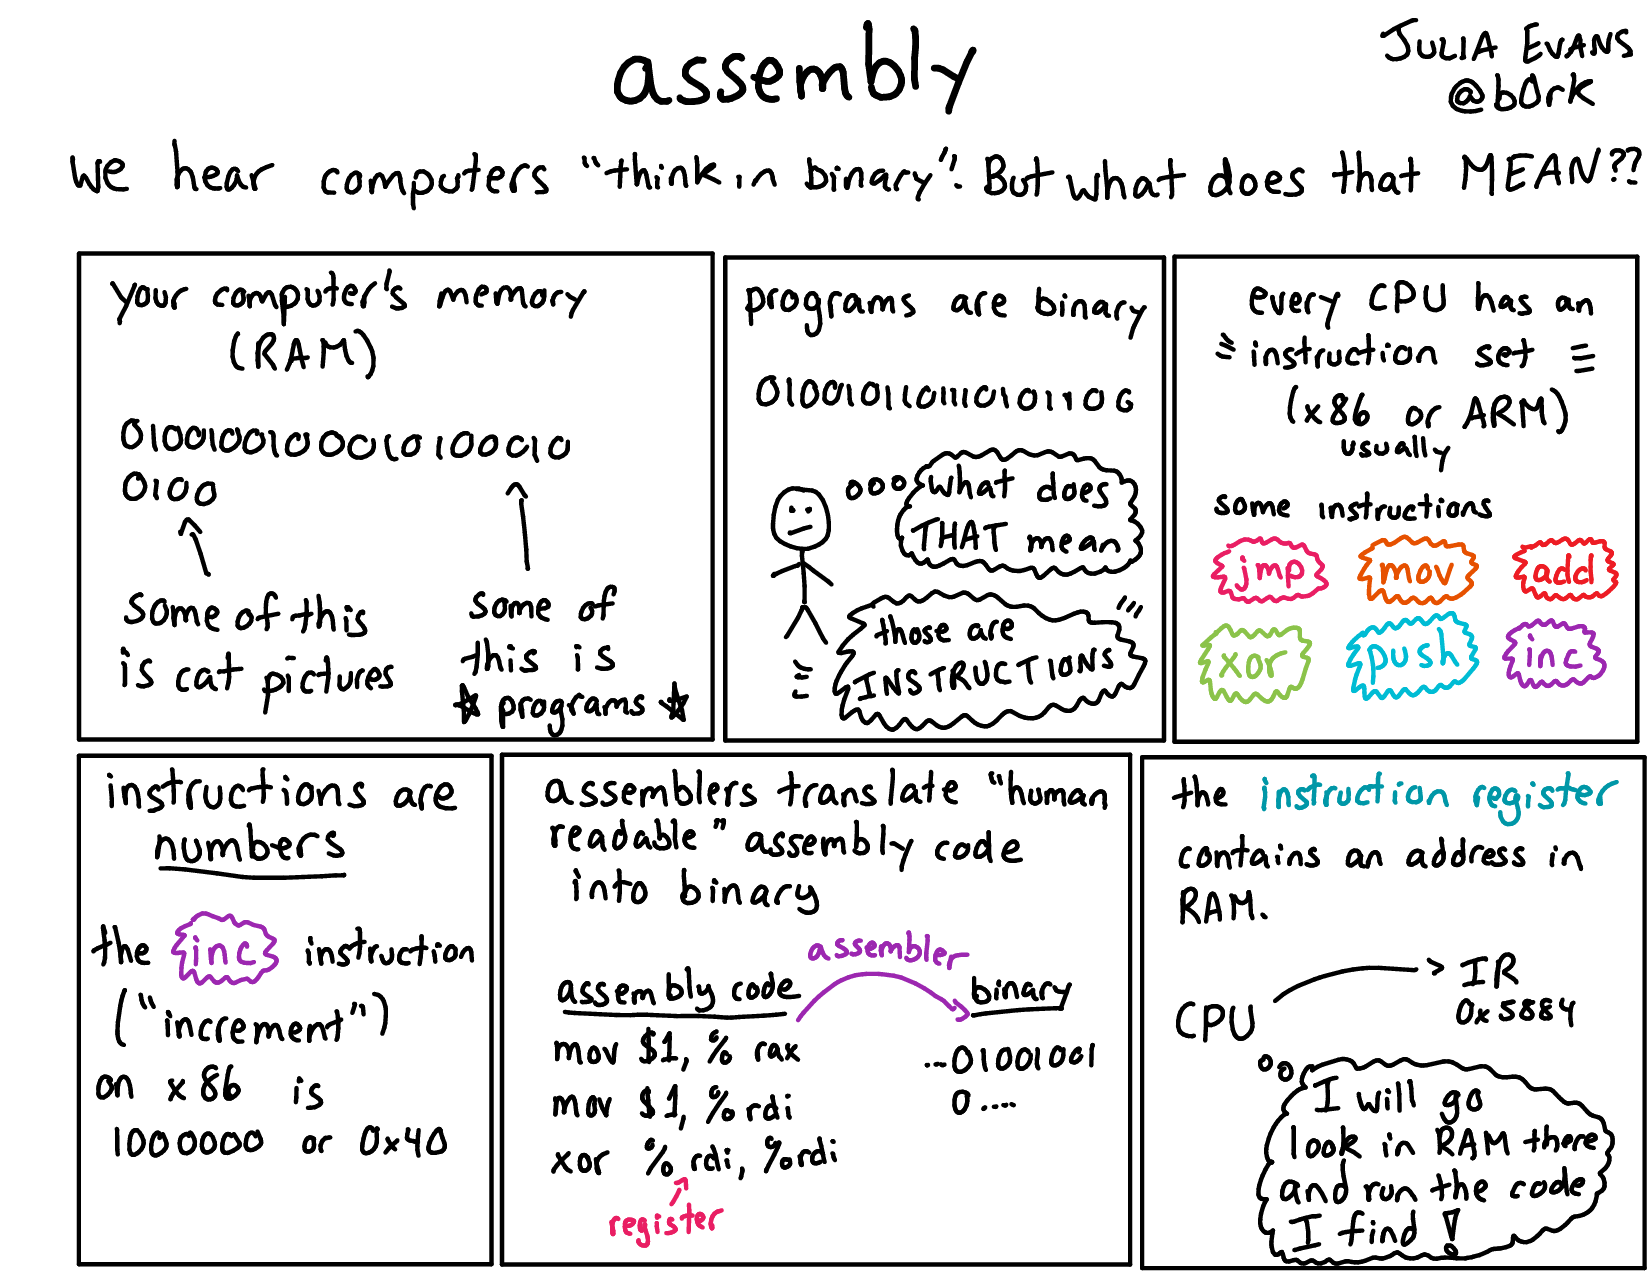 assembly
JULIA EVANS
@b0rk
we hear computers "think in binary". But what does that MEAN??
your computer's memory
(RAM)
01001001000010100010
0100
some of this
is cat pictures
some of
this is
☆ programs ☆
programs are binary
0100101101111010101100
what does
THAT mean
those are
INSTRUCTIONS
every CPU has an
instruction set
(x86 or ARM)
usually
some instructions
jmp mov add
xor push inc
instructions are
numbers
the inc instruction
("increment")
on x86 is
1000000 or 0x40
assemblers translate "human
readable" assembly code
into binary
assembler
assembly code binary
mov $1, % rax
mov $1, % rdi
xor % rdi, %rdi
register
...01001001
0....
the instruction register
contains an address in
RAM.
CPU
IR
0x5884
I will go
look in RAM there
and run the code
I find!